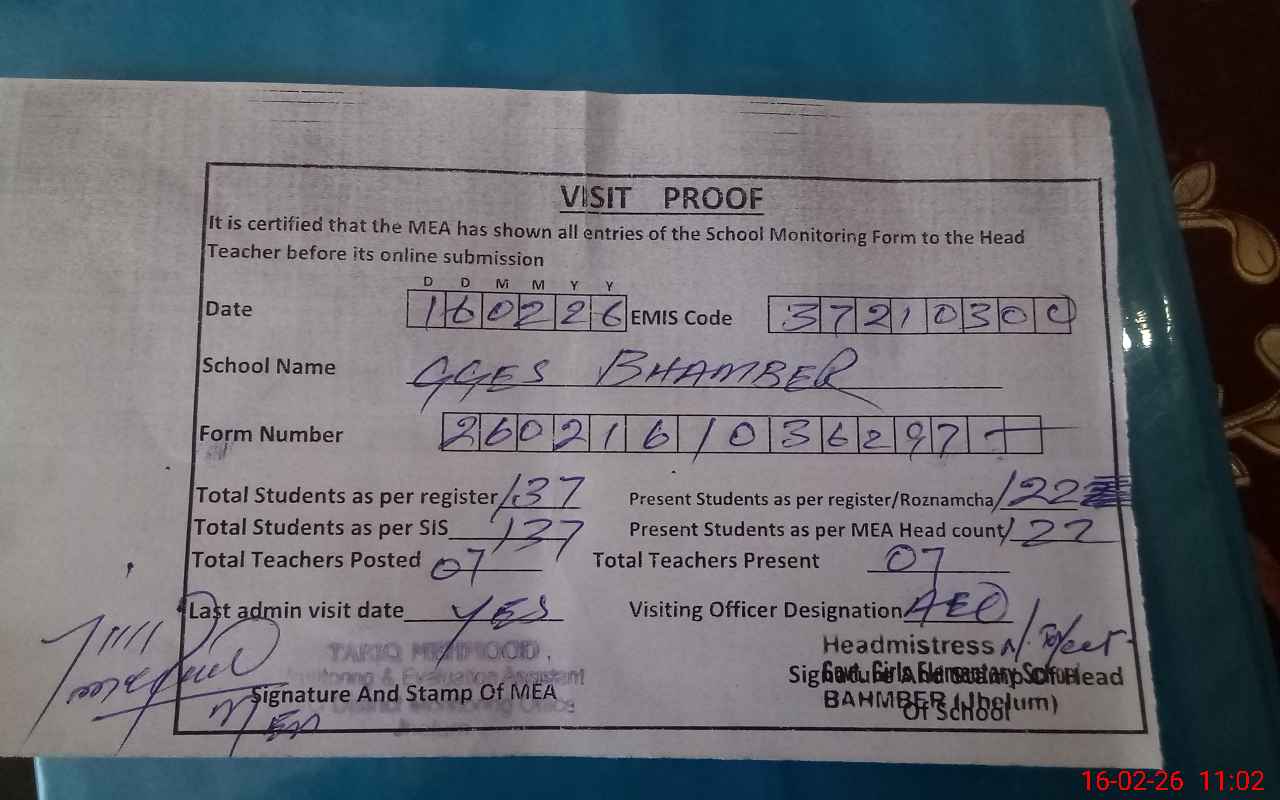 VISIT PROOF
It is certified that the MEA has shown all entries of the School Monitoring Form to the Head
Teacher before its online submission
D D M M Y Y
Date 160226 EMIS Code 37210300
School Name GGES BHAMBER
Form Number 2602161036297
Total Students as per register 137 Present Students as per register/Roznamcha 122
Total Students as per SIS 137 Present Students as per MEA Head count 122
Total Teachers Posted 07 Total Teachers Present 07
Last admin visit date YES Visiting Officer Designation AEO
TARIQ MEHMOOD, Headmistress
Monitoring & Evaluation Assistant Govt. Girls Elementary School
Signature And Stamp Of MEA Signature And Stamp Of Head
MEA BAHMBER (Jhelum)
Of School
16-02-26 11:02